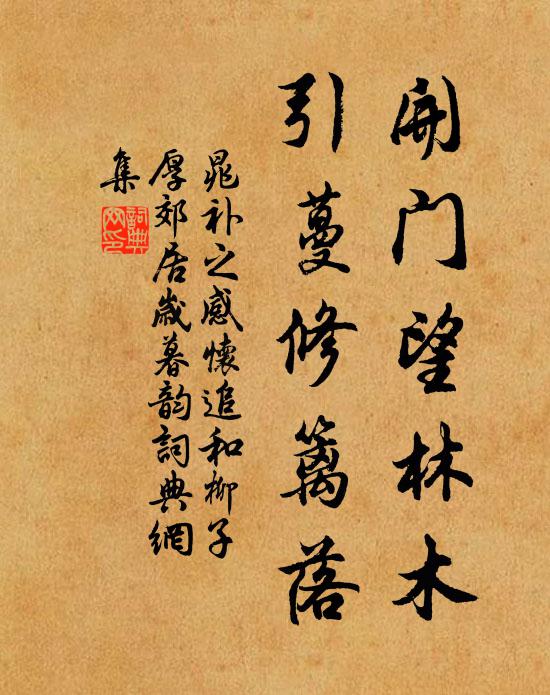 開门望林木
引蔓修篱落
晁补之感懷追和柳子
厚郊居歲暮韵詞典網
集
詞典
网印